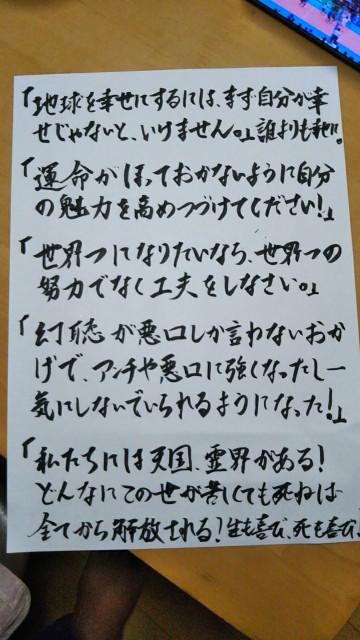 「地球を幸せにするには、まず自分が幸
せじゃないと、いけません。」誰よりも幸に。
「運命がほっておかないように自分
の魅力を高めつづけてください!」
「世界一になりたいなら、世界一の
努力でなく工夫をしなさい。」
「幻聴が悪口しか言わないおか
げで、アンチや悪口に強くなったし一
気にしないでいられるようになった!」
「私たちには天国、霊界がある!
どんなにこの世が苦しくても死ねば
全てから解放される!生も喜び、死も喜び!